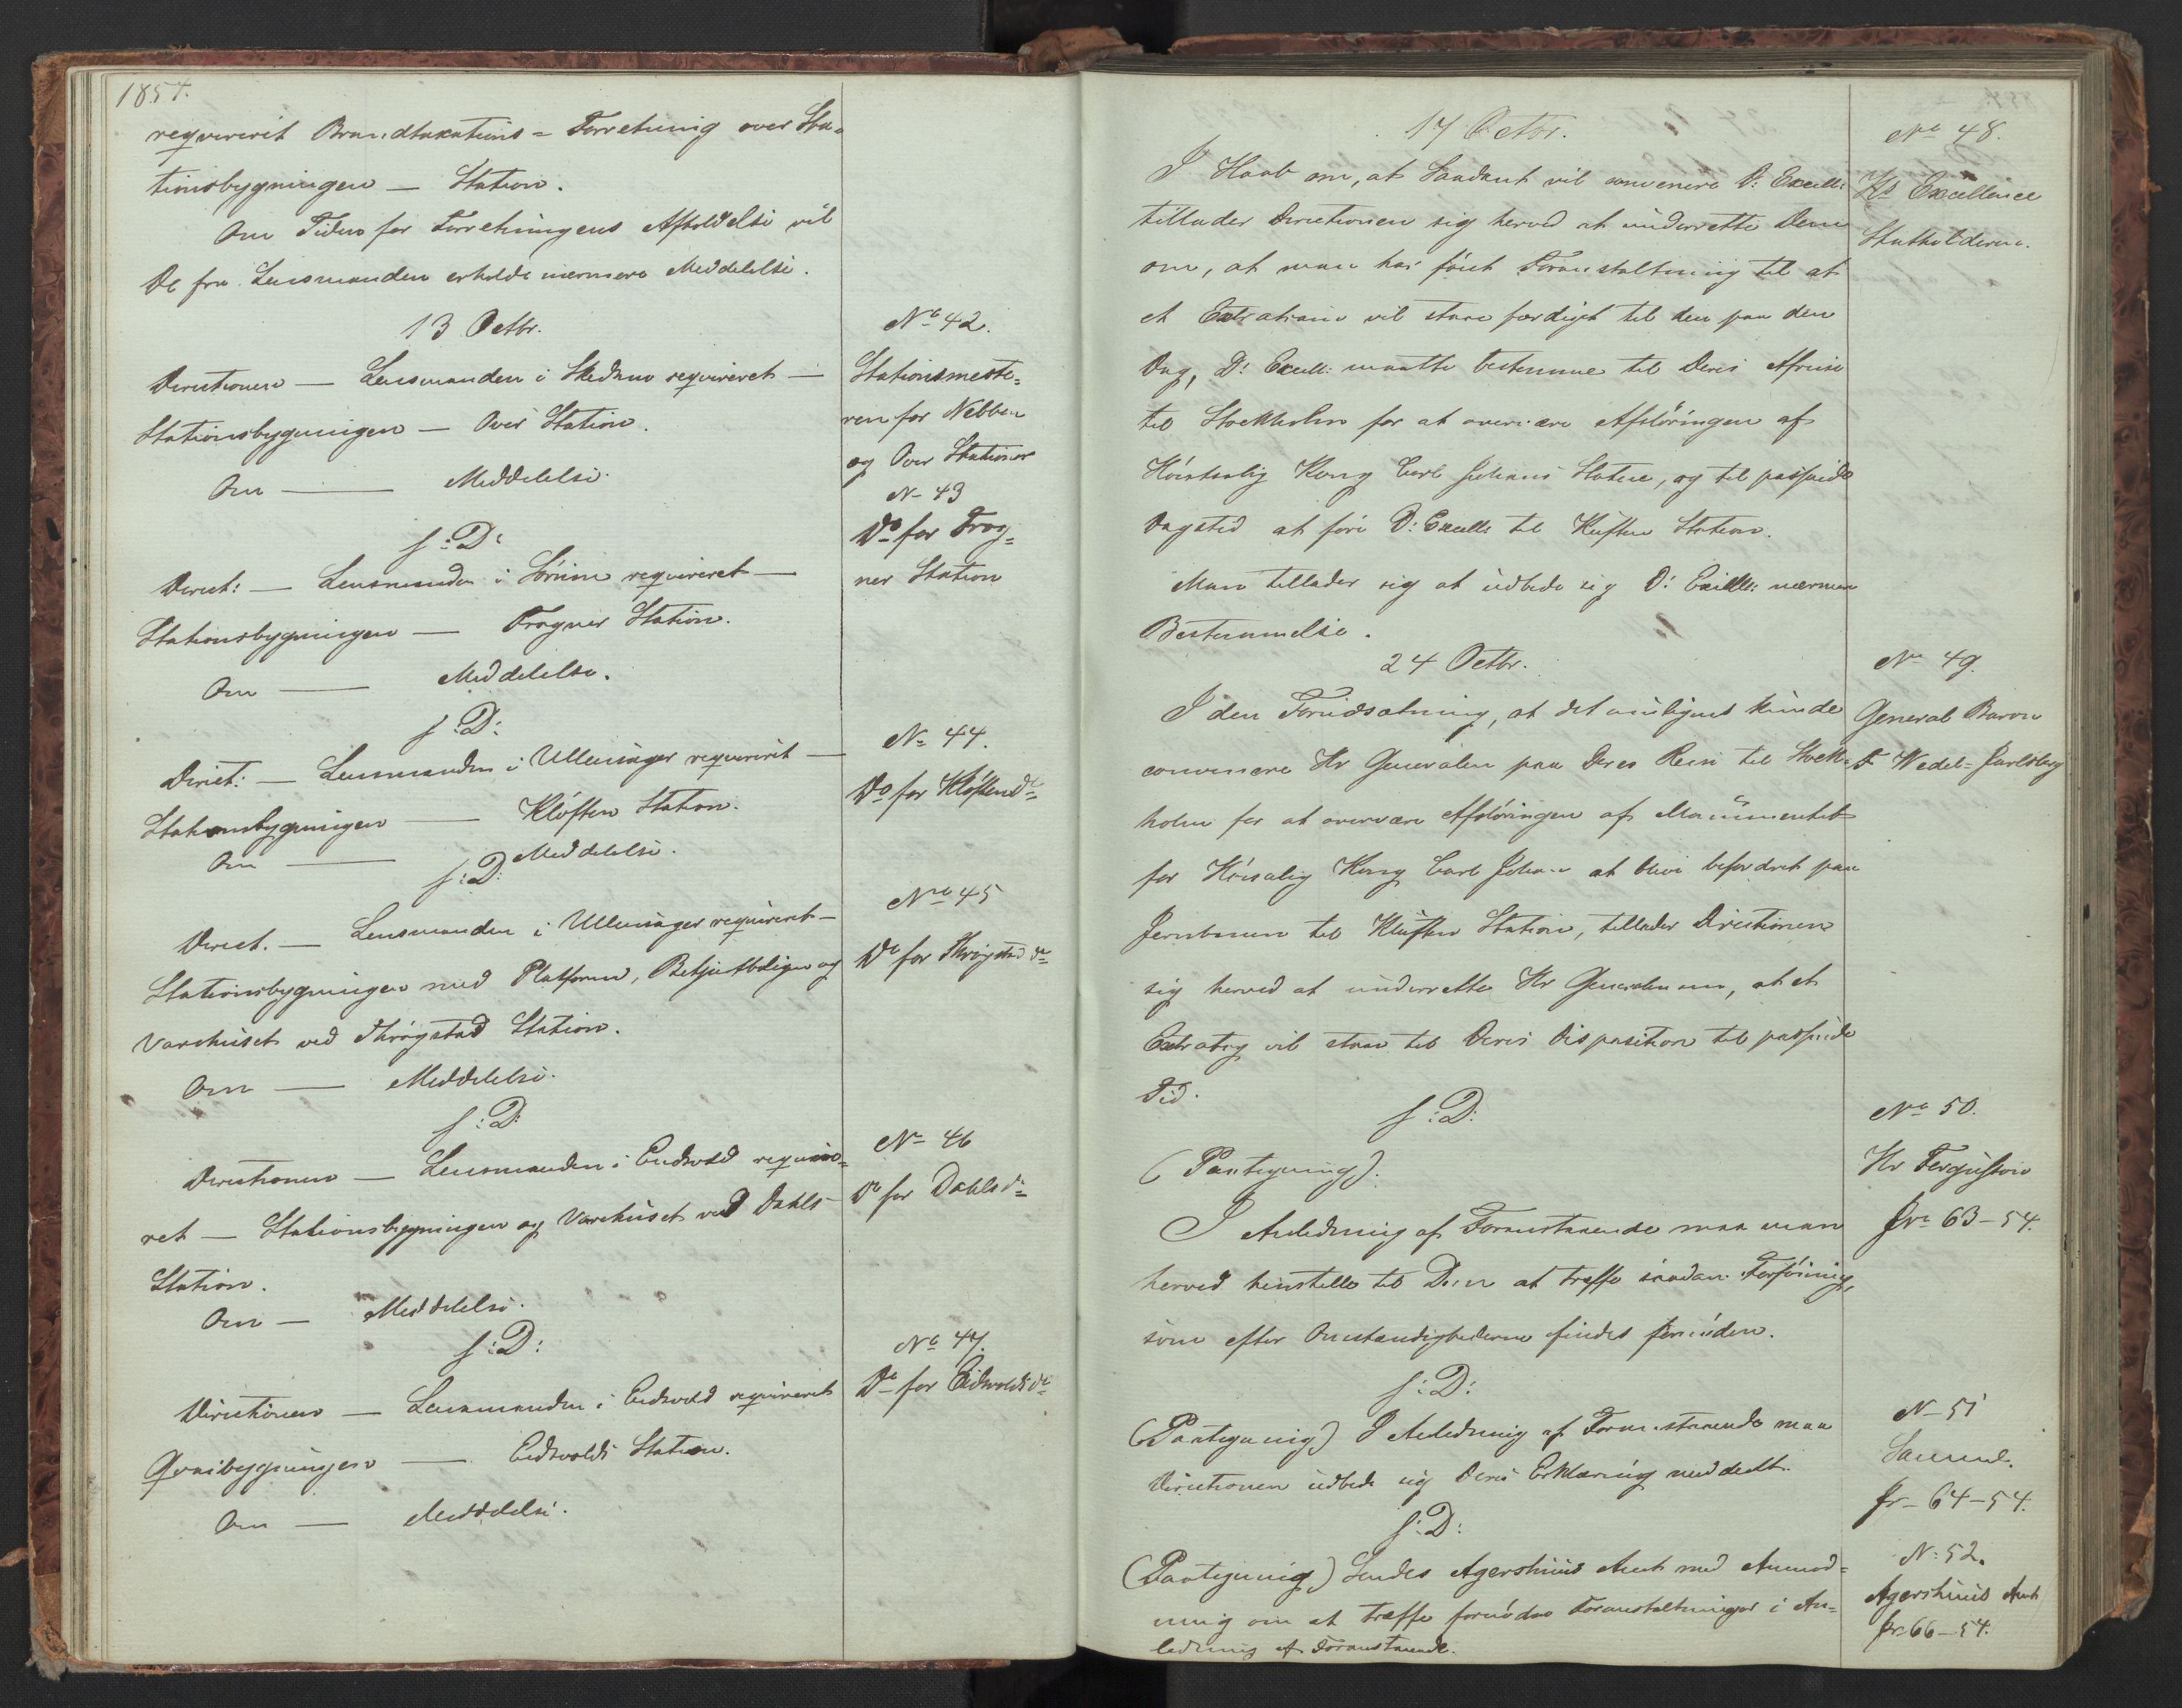 1854.
reqvirerit Brandtaxations = Forretning over Sta=
tionsbygningen — Station.
Om Tiden for Forretningens Afholdelse vil
De fra Lensmanden erholde nærmere Meddelelse.
13 Octbr.
No 42.
Directionen — Lensmanden i Skedsmo reqvireret —
Stationsbygningen — Over Station.
Om — Meddelelse.
Stationsmeste=
ren for Nebben
og Over Stationer
s: D:
N- 43
Do for Frog=
ner Station
Direct: — Lensmanden i Sørum reqvireret —
Stationsbygningen — Frogner Station.
Om — Meddelelse.
s: D:
No 44.
Do for Kløften do
Direct: — Lensmanden i Ullensager reqvirerit —
Stationsbygningen — Kløften Station.
Om — Meddelelse.
s: D:
No 45
Do for Thrøgstad do
Direct. — Lensmanden i Ullensager reqvireret —
Stationsbygningen med Platform, Betjentboligen og
Varehuset ved Thrøgstad Station.
Om — Meddelelse.
s: D:
No 46
Do for Dahls do
Directionen — Lensmanden i Eidsvold reqvire=
ret — Stationsbygningen og Varehuset ved Dahls
Station.
Om — Meddelelse.
s: D:
No 47.
Do for Eidsvolds do
Directionen — Lensmanden i Eidsvold reqvireret
Qvaibygningen — Eidsvolds Station.
Om — Meddelelse.
17 Octbr.
No 48.
Hs Excellence
Statholderen.
I Haab om, at Saadant vil convenere D: Excell:
tillader Directionen sig herved at underrette Dem
om, at man har føiet Foranstaltning til at
et Extratrain vil staae færdigt til den paa den
Dag, D: Excell: maatte bestemme til Deres Afreise
til Stockholm for at overvære Afsløringen af
Høistsalig Kong Carl Johans Statue, og til passende
Dagstid at føre D: Excell: til Kløften Station.
Man tillader sig at udbede sig D: Excell: nærmere
Bestemmelse.
24 Octbr.
No 49.
General Baron
F. Wedel=Jarlsberg
I den Forudsætning, at det muligens kunde
convenere Hr Generalen paa Deres Reise til Stock=
holm for at overvære Afsløringen af Monumentet
for Høisalig Kong Carl Johan at blive befordret paa
Jernbanen til Kløften Station, tillader Directionen
sig herved at underrette Hr Generalen om, at et
Extratog vil staae til Deres Disposition til passende
Tid.
s: D:
No 50.
Hr Fergusson
Jr 63-54.
(Paategning).
I Anledning af Foranstaaende maa man
herved henstille til Dem at træffe saadan Forføining,
som efter Omstændighederne findes fornøden.
s: D:
N- 51
Samme.
Jr- 64-54.
(Paategning) I Anledning af Foranstaaende maa
Directionen udbede sig Deres Erklæring meddeelt.
s: D:
N: 52.
Agershuus Amt
Jr 66-54.
(Paategning) Sendes Agershuus Amt med Anmod=
ning om at træffe fornødne Foranstaltninger i An=
ledning af Foranstaaende.